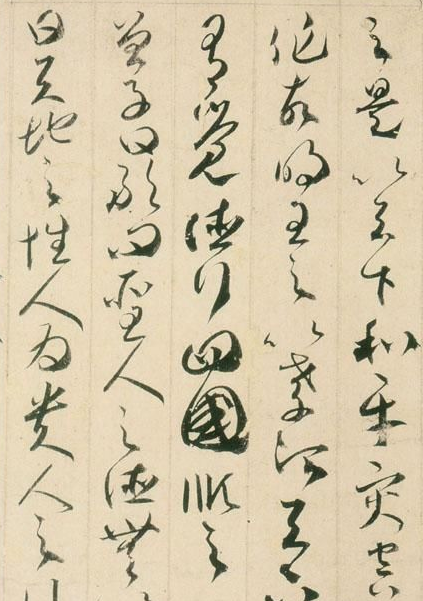 之是以天下和平灾害
作故明王之以孝治天
有覺德行四國順之
曾子曰敢問聖人之德無
曰天地之性人為貴人之